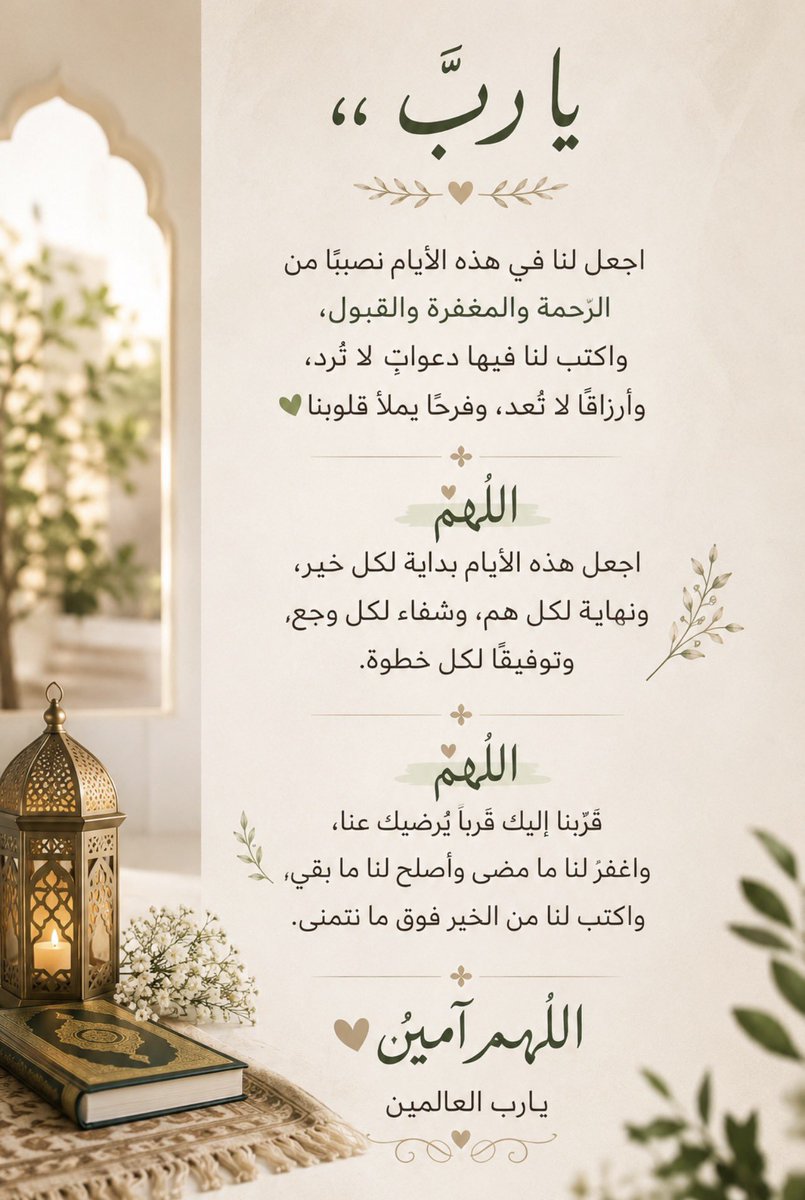 يا ربَّ ،،
اجعل لنا في هذه الأيام نصببًا من
الرّحمة والمغفرة والقبول،
واكتب لنا فيها دعواتٍ لا تُرد،
وأرزاقًا لا تُعد، وفرحًا يملأ قلوبنا
اللُهم
اجعل هذه الأيام بداية لكل خير،
ونهاية لكل هم، وشفاء لكل وجع,
وتوفيقًا لكل خطوة.
اللُهم
قَرِّبنا إليك قَرباً يُرضيك عنا،
واغفرُ لنا ما مضى وأصلح لنا ما بقي,
واكتب لنا من الخير فوق ما نتمنى.
اللُهم آمينُ
يارب العالمين